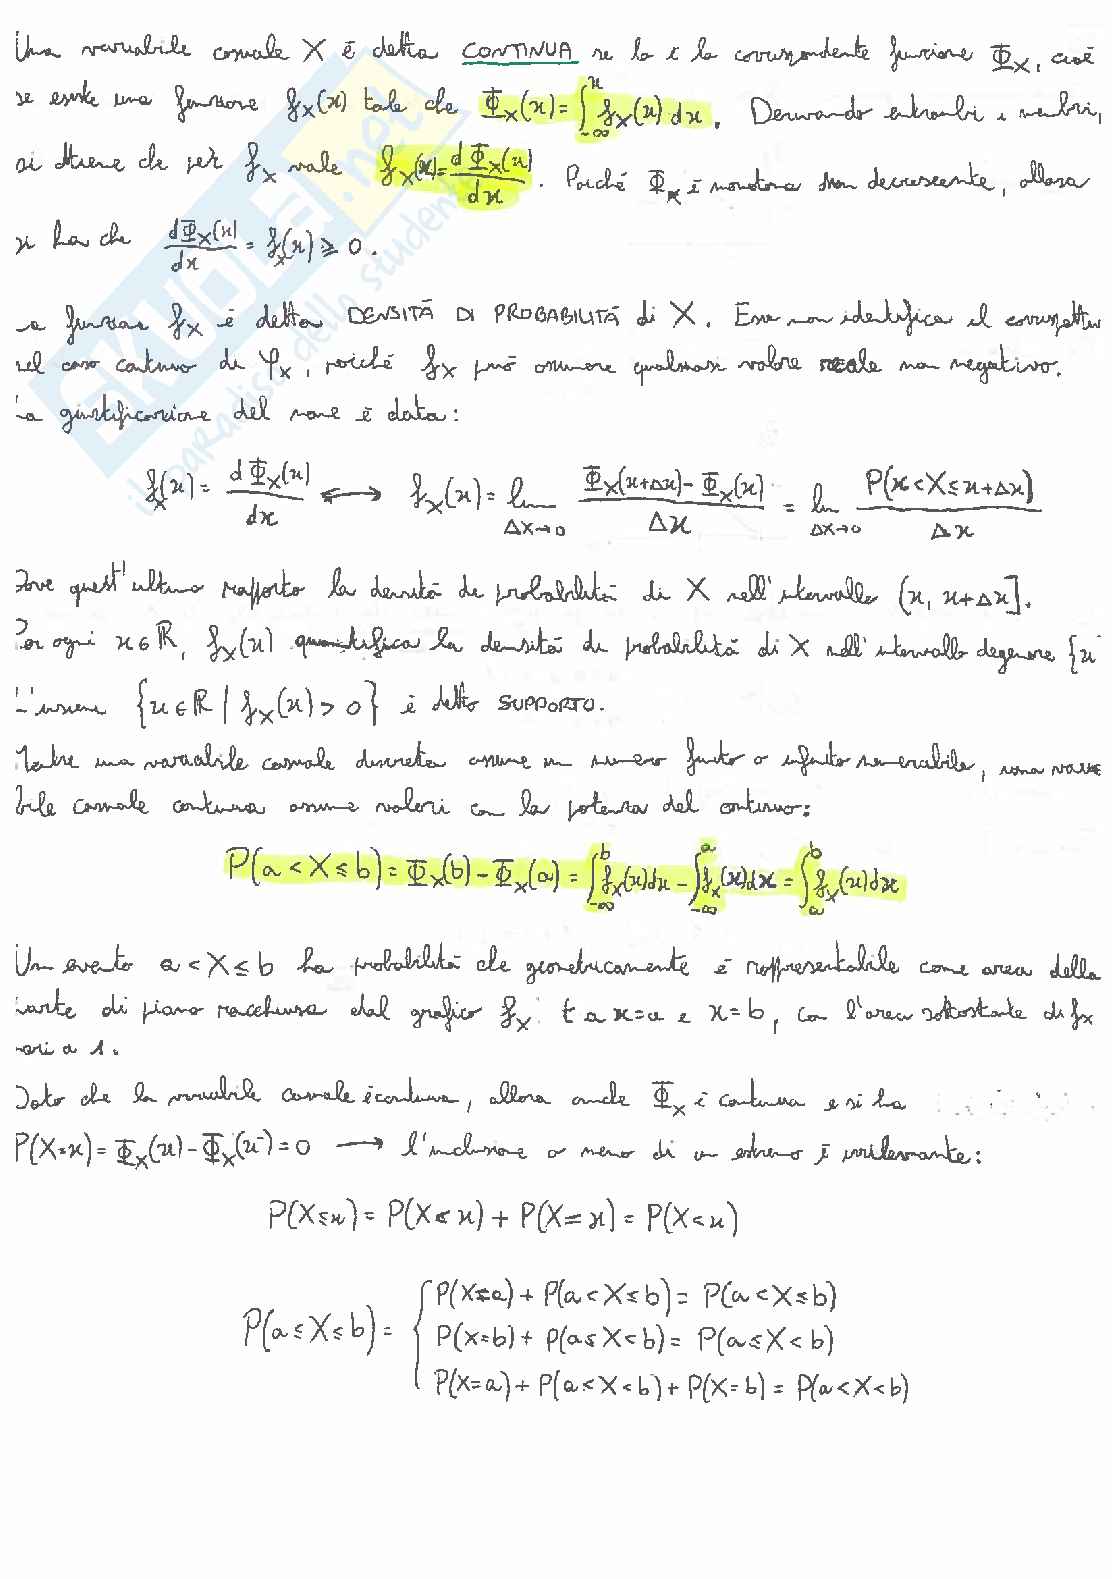 Una variabile casuale X è detta CONTINUA se lo è la corrispondente funzione Φ_X, cioè
se esiste una funzione f_X(x) tale che Φ_X(x) = ∫_{-∞}^{x} f_X(x) dx. Derivando entrambi i membri,
si ottiene che per f_X vale f_X(x) = dΦ_X(x)/dx. Poiché Φ_X è monotona non decrescente, allora
si ha che dΦ_X(x)/dx = f_X(x) ≥ 0.
La funzione f_X è detta DENSITÀ DI PROBABILITÀ di X. Essa non identifica il corrispettivo
nel caso continuo di φ_X, poiché f_X può assumere qualsiasi valore reale non negativo.
La giustificazione del nome è data:
f_X(x) = dΦ_X(x)/dx ⟷ f_X(x) = lim_{Δx→0} (Φ_X(x+Δx) - Φ_X(x))/Δx = lim_{Δx→0} P(x < X ≤ x+Δx)/Δx
Dove quest'ultimo rapporto la densità di probabilità di X nell'intervallo (x, x+Δx].
Per ogni x ∈ ℝ, f_X(x) quantifica la densità di probabilità di X nell'intervallo degenere {x
L'insieme {x ∈ ℝ | f_X(x) > 0} è detto SUPPORTO.
Mentre una variabile casuale discreta assume un numero finito o infinito numerabile, una varia
bile casuale continua assume valori con la potenza del continuo:
P(a < X ≤ b) = Φ_X(b) - Φ_X(a) = ∫_{-∞}^{b} f_X(x) dx - ∫_{-∞}^{a} f_X(x) dx = ∫_{a}^{b} f_X(x) dx
Un evento a < X ≤ b ha probabilità che geometricamente è rappresentabile come area della
parte di piano racchiusa dal grafico f_X t a x=a e x=b, con l'area sottostante di f_X
pari a 1.
Dato che la variabile casuale è continua, allora anche Φ_X è continua e si ha
P(X=x) = Φ_X(x) - Φ_X(x⁻) = 0 ⟶ l'inclusione o meno di un estremo è irrilevante:
P(X ≤ x) = P(X < x) + P(X = x) = P(X < x)
P(a ≤ X ≤ b) = { P(X=a) + P(a < X ≤ b) = P(a < X ≤ b)
P(X=b) + P(a ≤ X < b) = P(a ≤ X < b)
P(X=a) + P(a < X < b) + P(X=b) = P(a < X < b)
SKUOLA.net
il paradiso dello studente